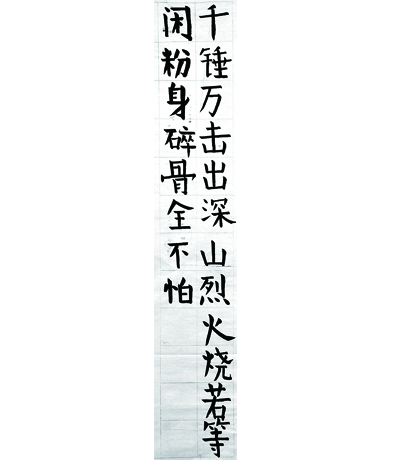 千锤万击出深山烈火烧若等
闲粉身碎骨全不怕